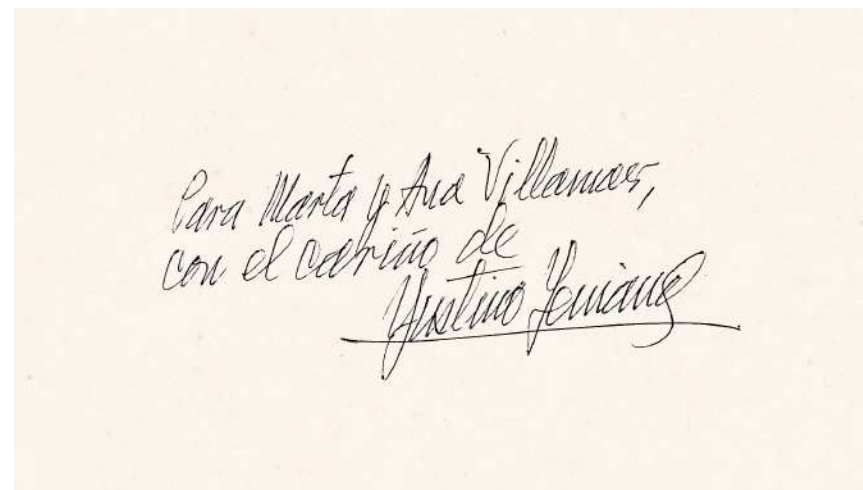 Para Marta y Ana Villamor,
con el cariño de
Yustino